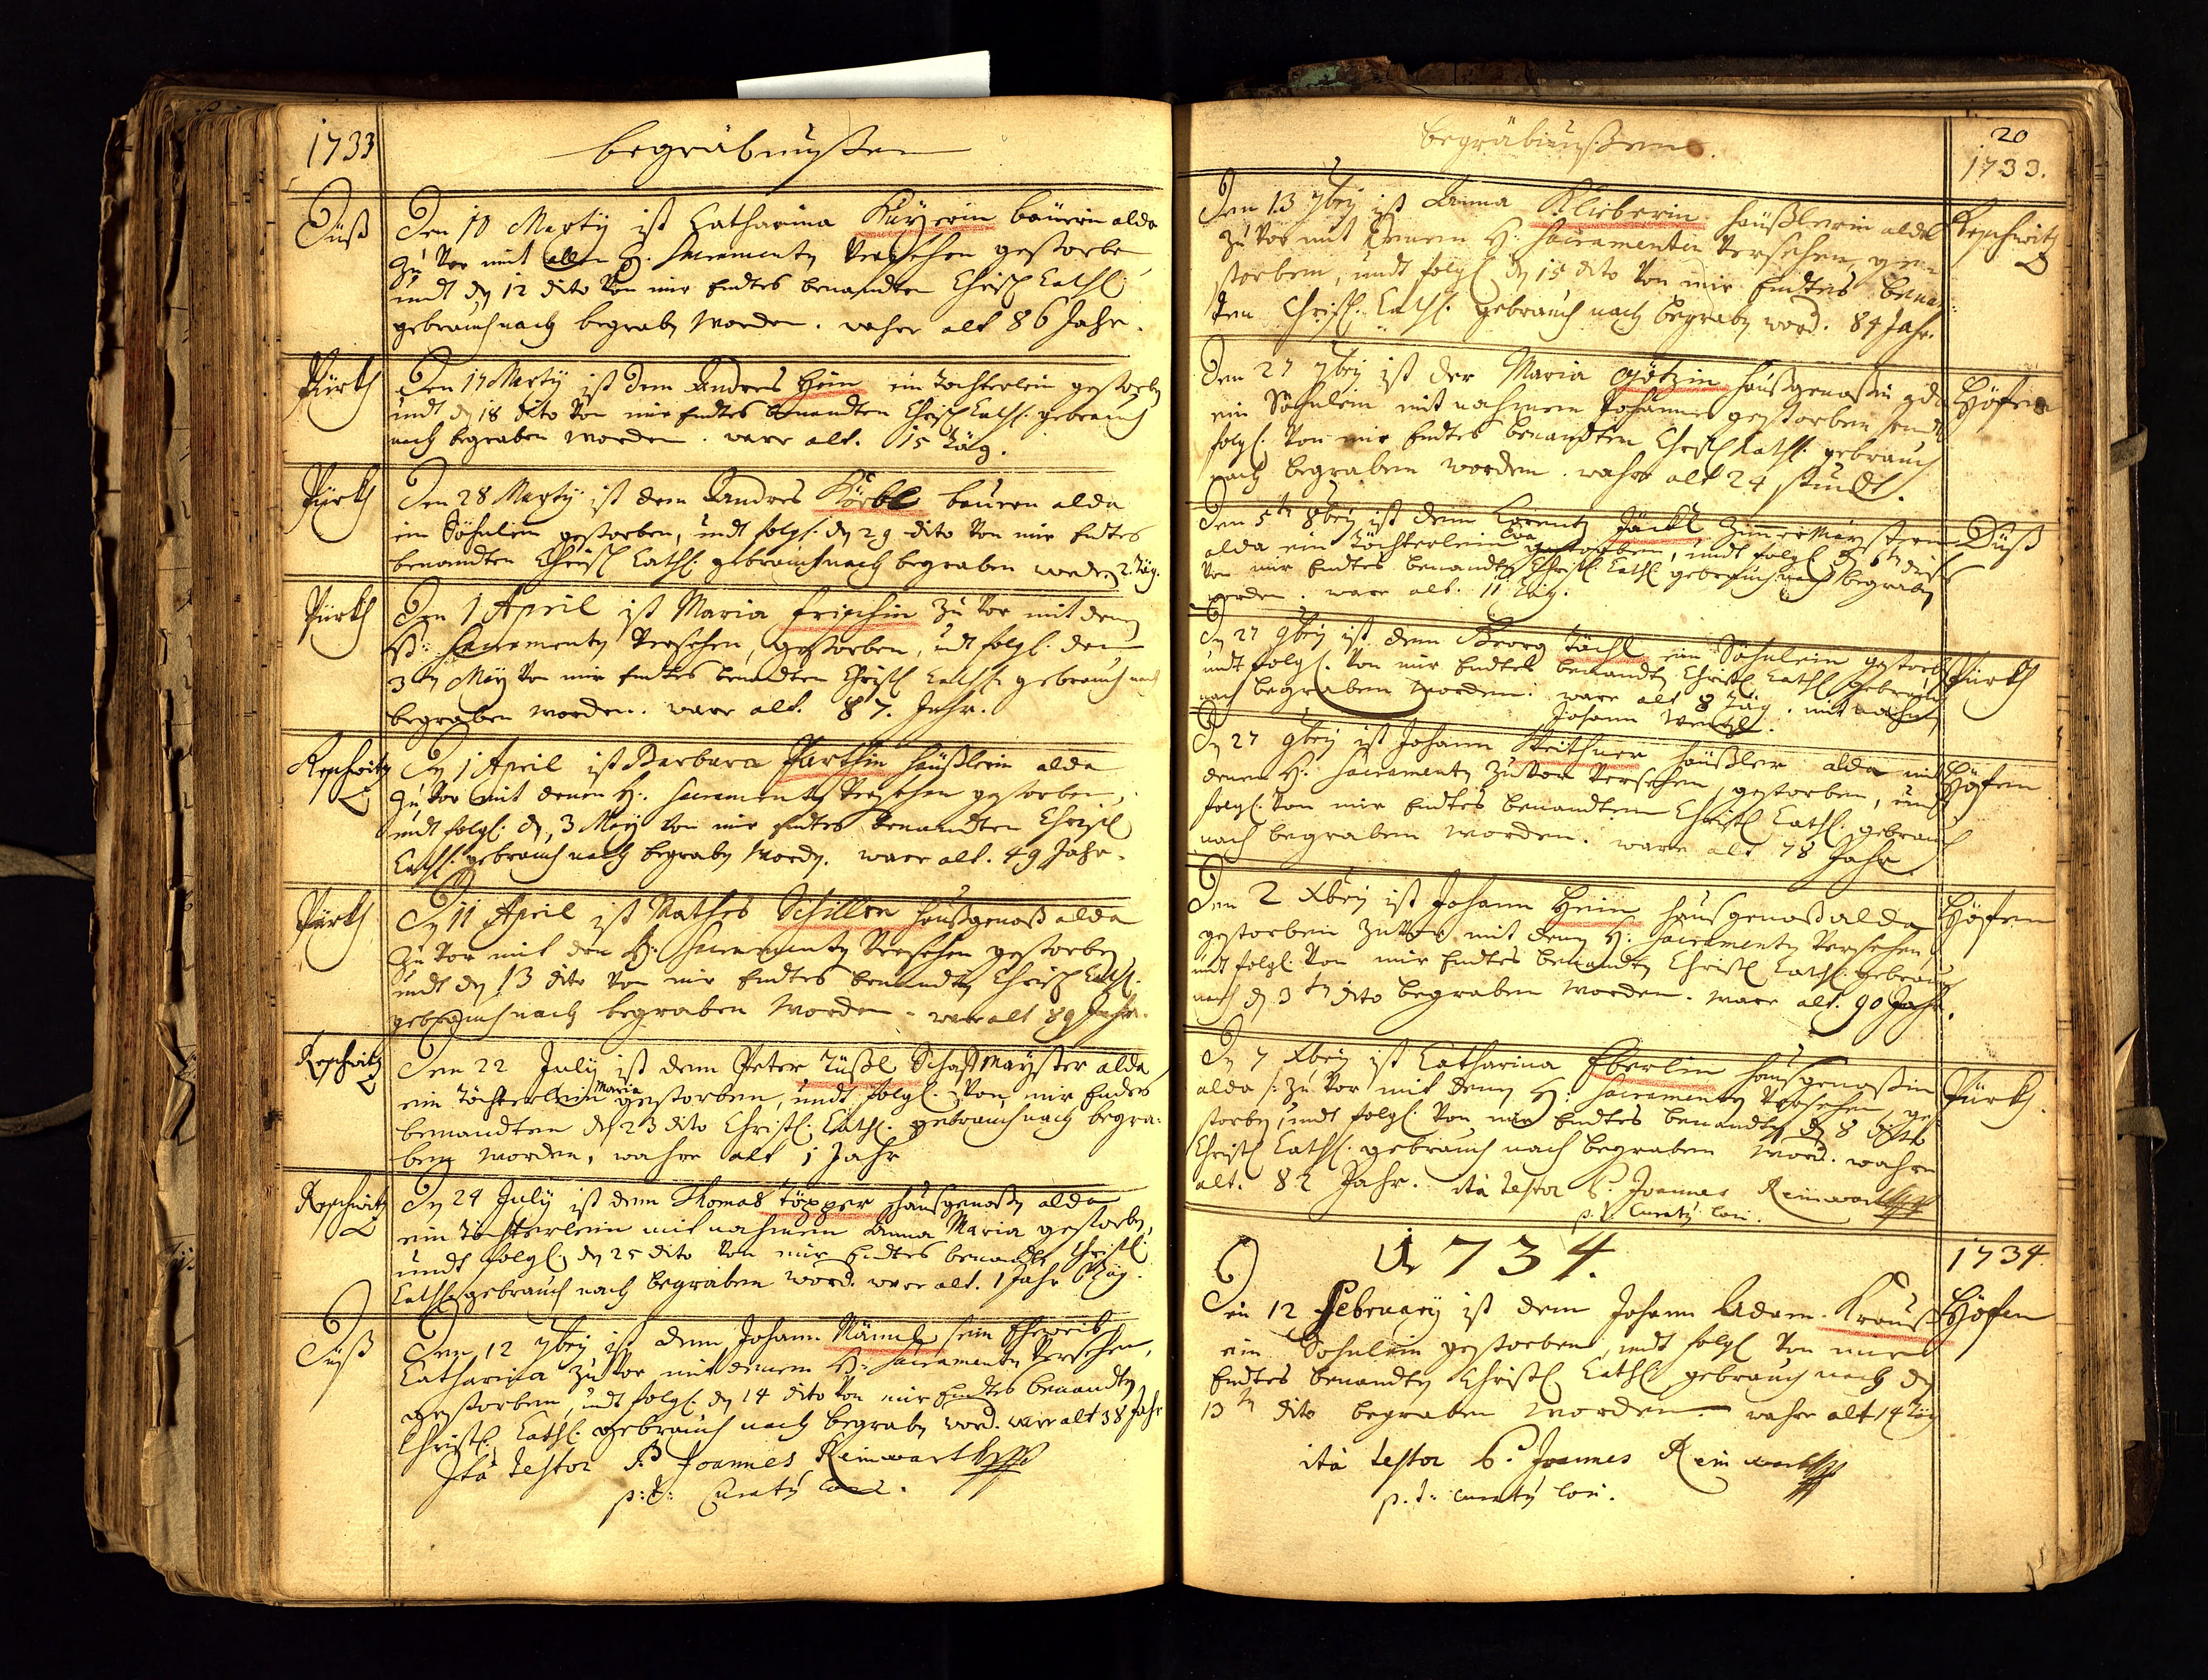 1733
begräbnußen
Düß
Den 10 Marty ist Catharina Kuyserin bäuerin alda
zu vor mit allen H: Sacramenty versehen gestorben
undt dn 12 dito von mir Endtes benandten Christ Cathl:
gebrauch nach begraben worden. wahre alt 86 Jahr.
Pürkh
Den 17 Marty ist dem Andres Hein ein tochterlein gestorben
undt dn 18 dito von mir Endtes benandten Christ Cathl: gebrauch
nach begraben worden. ware alt. 15 täg.
Pürkh
Den 28 Marty ist dem Andres Körbl bauern alda
ein Söhnlein gestorben, undt folgl: dn 29 dito von mir Endtes
benandten Christ Cathl: gebrauch nach begraben worden 2 täg.
Pürkh
Den 1 April ist Maria frischin zu vor mit denen
H: Sacramenty versehen, gestorben, undt folgl: den
3tn May von mir Endtes benandten Christl Cathl: gebrauch nach
begraben worden. ware alt. 87. Jahr.
Reschwitz
Dn 1 April ist Barbara häußlerin alda
zu vor mit denen H: Sacramenty versehen gestorben,
undt folgl: dn 3 May von mir Endtes benandten Christl
Cathl: gebrauch nach begraben worden. ware alt. 49 Jahr.
Pürkh
Dn 11 April ist Mathes Schiller haußgenoß alda
zu vor mit den H: Sacramenty versehen gestorben
undt dn 13 dito von mir Endtes benandten Christ Cathl:
gebrauch nach begraben worden. ware alt 89 Jahr.
Reschwitz
Den 22 July ist dem Peter Tüßl Schaffmayster alda
ein töchterlein Maria gestorben, undt folgl: von mir Endes
benandten dn 23 dito Christl: Cathl: gebrauch nach begra-
ben worden, wahre alt 1 Jahr
Reschwitz
Dn 24 July ist dem Thomas töpper haußgenoßn alda
ein töchterlein mit nahmen Anna Maria gestorben,
undt folgl: dn 25 dito von mir Endtes benandten Christl:
Cathl: gebrauch nach begraben word. ware alt. 1 Jahr 6 täg.
Düß
Den 12 7bry ist dem Johann Männl sein Eheweib
Catharina zu vor mit denenn H: Sacramenty versehen,
gestorben, undt folgl: dn 14 dito von mir Endtes benandten
Christl: Cathl: gebrauch nach begraben word. ware alt 38 Jahr
Ita testor P. Joannes Reinwarth
p:t: Curatus loci.
begräbnußen.
20
1733.
Den 13 7bry ist Anna Klieberin häußlerin alda
zu vor mit denenn H: Sacramenten versehen, ge-
storben, undt folgl dn 15 dito von mir Endtes benan-
ten Christl: Cathl: gebrauch nach begraben word. 84 Jahr.
Reschwitz
Den 27 7bry ist der Maria Götzin haußgenoßin alda
ein Söhnlein mit nahmen Johannes gestorben, undt
folgl: von mir Endtes benandten Christl Cathl: gebrauch
nach begraben worden. wahre alt 24 stundt.
Höfen
Den 5tn 8bry ist dem Lorentz Jäckl Zimmermaystern
alda ein töchterlein Eva gestorben, undt folgl dn 6tn dito
von mir Endtes benandten Christl: Cathl gebrauch nach begraben
worden. ware alt. 11 täg.
Düß
Dn 27 9bry ist dem Georg töchl ein Söhnlein gestorben
undt folgl: von mir Endtes benandten Christl Cathl: gebrauch
nach begraben worden. ware alt 8 täg. mit nahmen
Johann Wentzl.
Pürkh
Dn 27 9bry ist Johann häußler alda mit
denen H: Sacramenty zu vor versehen, gestorben, undt
folgl: von mir Endtes benandtem Christl Cathl: gebrauch
nach begraben worden. ware alt 78 Jahr
Höfen
Den 2 Xbry ist Johann Hein haußgenoß alda
gestorben zu vor mit denen H: Sacramenty versehen,
undt folgl: von mir Endtes benandten Christl Cathl: gebrauch
nach dn 3tn dito begraben worden. ware alt. 90 Jahr.
Höfen
Dn 7 Xbry ist Catharina Eberlin haußgenoßin
alda /: zu vor mit denen H: Sacramenty versehen, ge-
storben, undt folgl: von mir Endtes benandten dn 8 dito
Christl Cathl: gebrauch nach begraben word. wahre
alt. 82 Jahr. ita testor P. Joannes Reinwarth
p.t. Curatus loci.
Pürkh.
1734.
1734.
Den 12 February ist dem Johann Adam Krauß
ein Söhnlein gestorben, undt folgl von mir
Endtes benandten Christl Cathl gebrauch nach dn
13tn dito begraben worden. wahre alt 14 täg
Höfen
ita testor P. Joannes Reinwarth
p.t. Curatus loci.